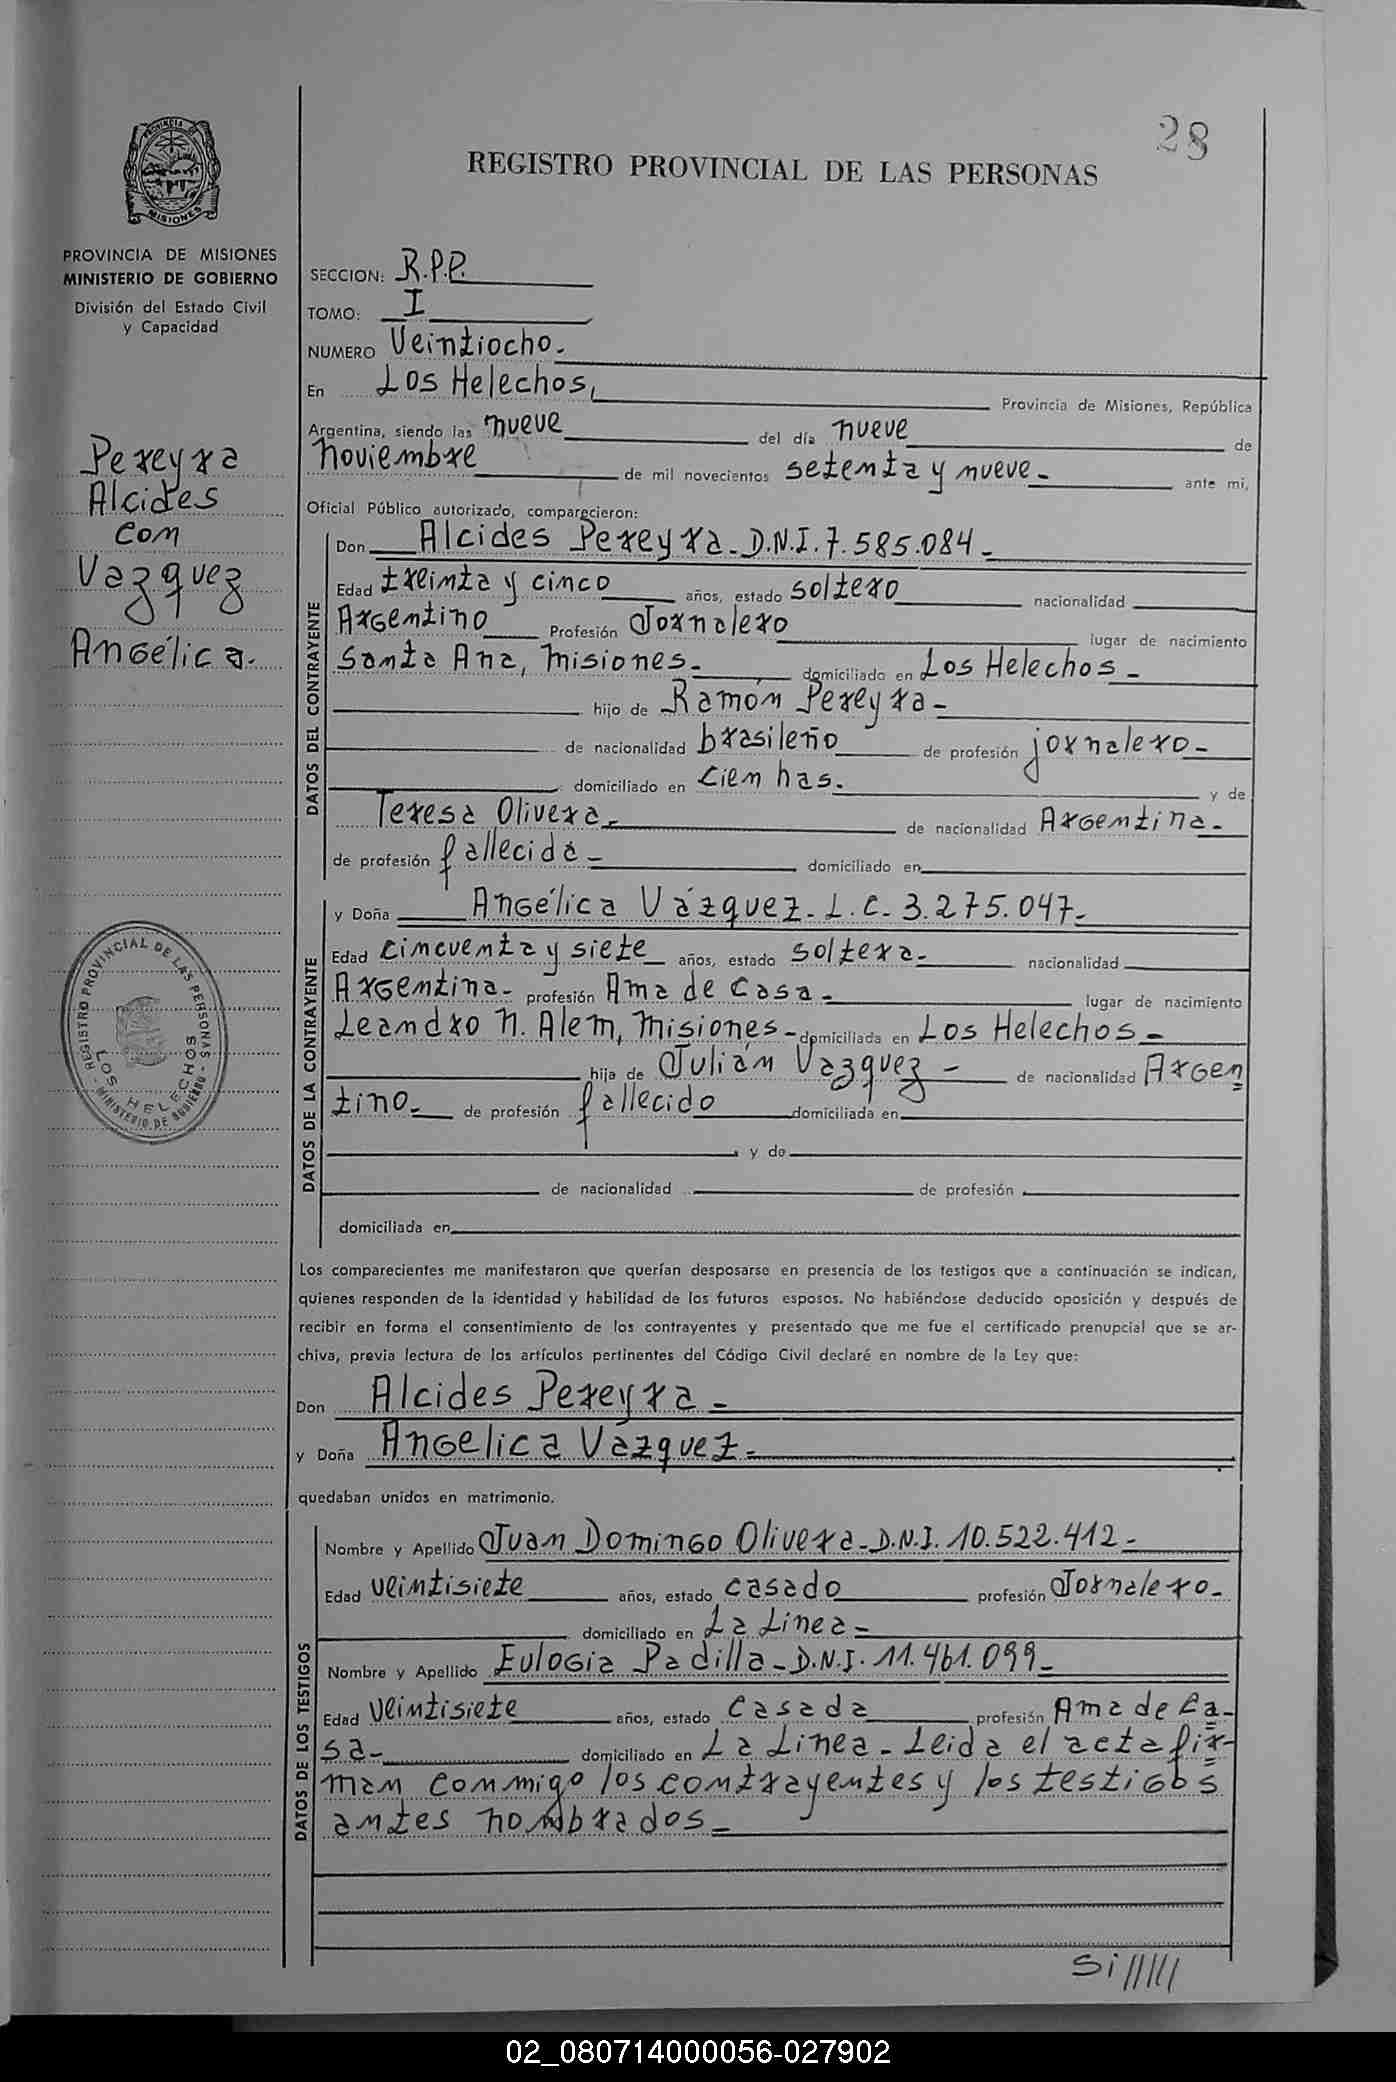 28
REGISTRO PROVINCIAL DE LAS PERSONAS
PROVINCIA DE
MISIONES
PROVINCIA DE MISIONES
MINISTERIO DE GOBIERNO
División del Estado Civil
y Capacidad
Pereyra
Alcides
con
Vazquez
Angélica.
REGISTRO PROVINCIAL DE LAS PERSONAS - MINISTERIO DE GOBIERNO -
LOS HELECHOS
SECCION: R.P.P.
TOMO: I
NUMERO Veintiocho.-
En Los Helechos, Provincia de Misiones, República
Argentina, siendo las nueve del día nueve de
noviembre de mil novecientos setenta y nueve- ante mi,
Oficial Público autorizado, comparecieron:
DATOS DEL CONTRAYENTE
Don Alcides Pereyra- D.N.I. 7.585.084-
Edad treinta y cinco años, estado soltero nacionalidad
Argentino Profesión Jornalero lugar de nacimiento
Santa Ana, Misiones.- domiciliado en Los Helechos-
hijo de Ramón Pereyra-
de nacionalidad brasileño de profesión jornalero-
domiciliado en cien has. y de
Teresa Olivera- de nacionalidad Argentina-
de profesión fallecida- domiciliado en
DATOS DE LA CONTRAYENTE
y Doña Angélica Vázquez- L.C. 3.275.047-
Edad cincuenta y siete años, estado soltera- nacionalidad
Argentina- profesión Ama de Casa- lugar de nacimiento
Leandro N. Alem, Misiones- domiciliada en Los Helechos-
hija de Julián Vazquez- de nacionalidad Argen
tino- de profesión fallecido domiciliada en
y de
de nacionalidad de profesión
domiciliada en
Los comparecientes me manifestaron que querían desposarse en presencia de los testigos que a continuación se indican,
quienes responden de la identidad y habilidad de los futuros esposos. No habiéndose deducido oposición y después de
recibir en forma el consentimiento de los contrayentes y presentado que me fue el certificado prenupcial que se ar-
chiva, previa lectura de los artículos pertinentes del Código Civil declaré en nombre de la Ley que:
Don Alcides Pereyra-
y Doña Angelica Vazquez-
quedaban unidos en matrimonio.
DATOS DE LOS TESTIGOS
Nombre y Apellido Juan Domingo Olivera- D.N.I. 10.522.412-
Edad veintisiete años, estado casado profesión Jornalero-
domiciliado en La Linea-
Nombre y Apellido Eulogia Padilla- D.N.I. 11.461.099-
Edad veintisiete años, estado casada profesión Ama de Ca-
sa- domiciliado en La Linea- Leida el acta fir-
man conmigo los contrayentes y los testigos
antes nombrados-
Si//////
02_080714000056-027902